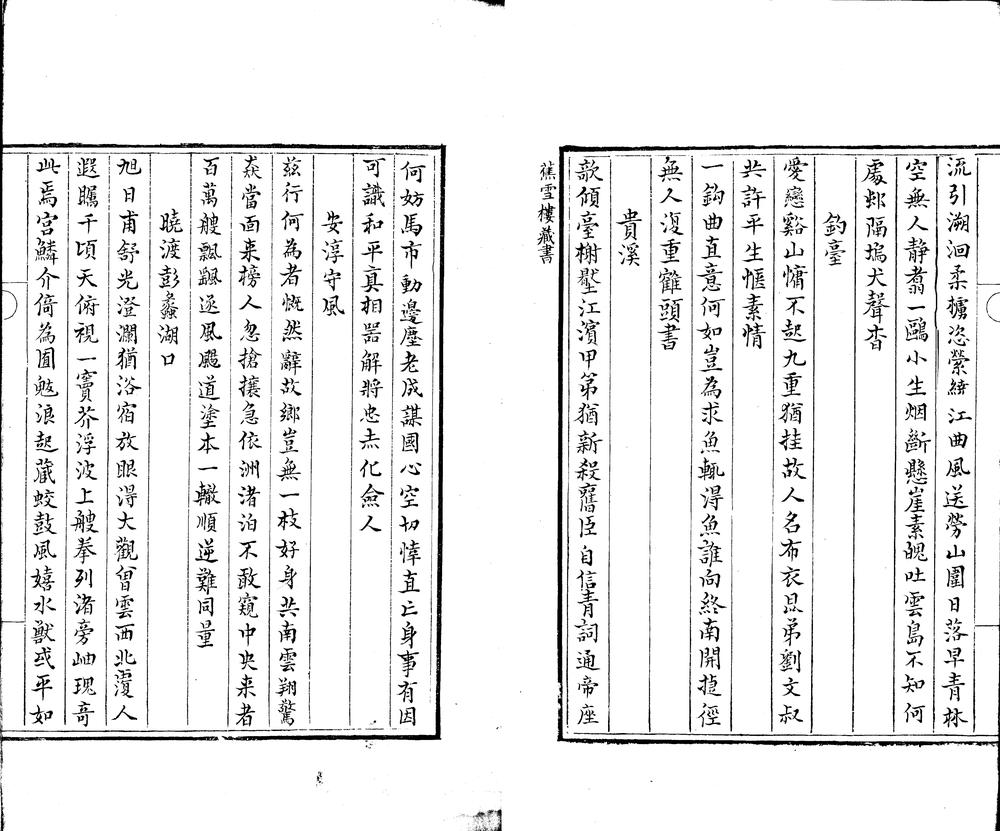 流引溯洄柔櫨恣縈紆江曲風送勞山圍日落早青林
空無人静翥一鷗小生烟斷懸崖素魄吐雲島不知何
處邨隔塢犬聲杳
釣臺
愛戀谿山慵不起九重猶挂故人名布衣昆弟劉文叔
共許平生愜素情
一鈎曲直意何如豈為求魚輒得魚誰向終南開捷徑
無人復重雚頭書
貴溪
歌傾臺榭壓江濱甲第猶新殺舊臣自信青詞通帝座
蕉雪樓藏書
何妨馬市動邊塵老成謀國心空切悻直亡身事有因
可識和平真相器解將忠赤化僉人
安淳守風
茲行何為者慨然辭故鄉豈無一枝好身共南雲翔驚
猋當面来榜人忽搶攘急依洲渚泊不敢窺中央来者
百萬艘飄飄逐風颺道塗本一轍順逆難同量
曉渡彭蠡湖口
旭日甫舒光澄瀾猶浴宿放眼得大觀曾雲西北覆人
遐矚千頃天俯視一竇芥浮波上艘拳列渚旁岫瑰奇
此焉宫鱗介偹為囿魃浪起蔵蛟鼓風嬉水獸或平如